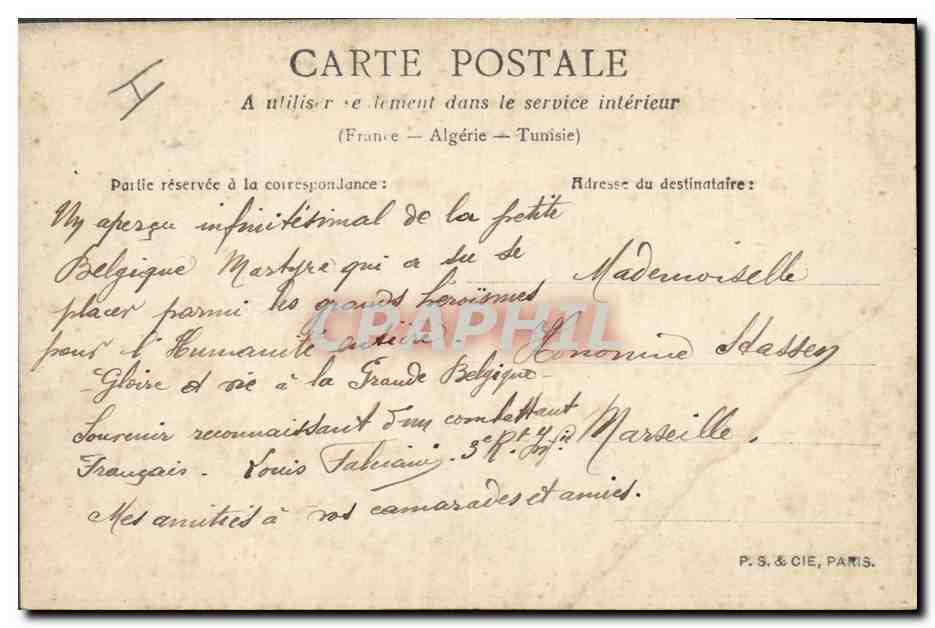 CARTE POSTALE
A utiliser seulement dans le service intérieur
(France — Algérie — Tunisie)
Partie réservée à la correspondance :
Adresse du destinataire :
Un aperçu infinitésimal de la petite
Belgique Martyre qui a su se
placer parmi les grands héroïsmes
pour l'Humanité entière.
Gloire et vie à la Grande Belgique
Souvenir reconnaissant d'un combattant
Français. Louis 3e Rt
Mes amitiés à vos camarades et amies.
Mademoiselle
Honorine Stassen
Marseille.
CPAPHIL
P. S. & CIE, PARIS.